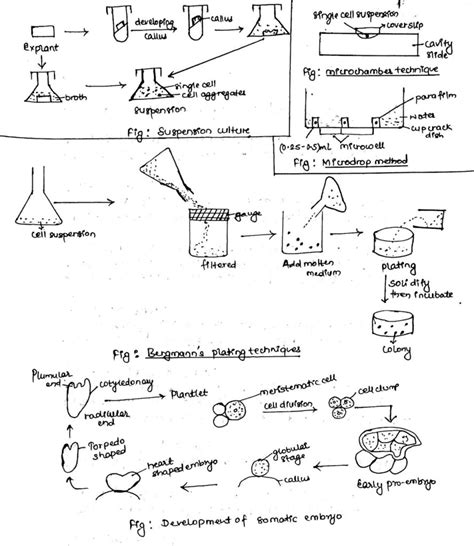 Explant
developing
callus
callus
broth
single cell
cell aggregates
suspension
Fig: Suspension culture
single cell suspension
coverslip
cavity
slide
Fig: microchamber technique
parafilm
water
cuprack
dish
(0.25-0.5)mL microwell
Fig: Microdrop method
cell suspension
gauge
filtered
Add molten
medium
plating
solidify
then incubate
colony
Fig: Bergmann's plating techniques
Plumular
end
cotyledonary
radicular
end
Plantlet
meristematic cell
cell division
cell clump
Early pro-embryo
globular
stage
callus
heart
shaped embryo
Torpedo
shaped
Fig: Development of somatic embryo